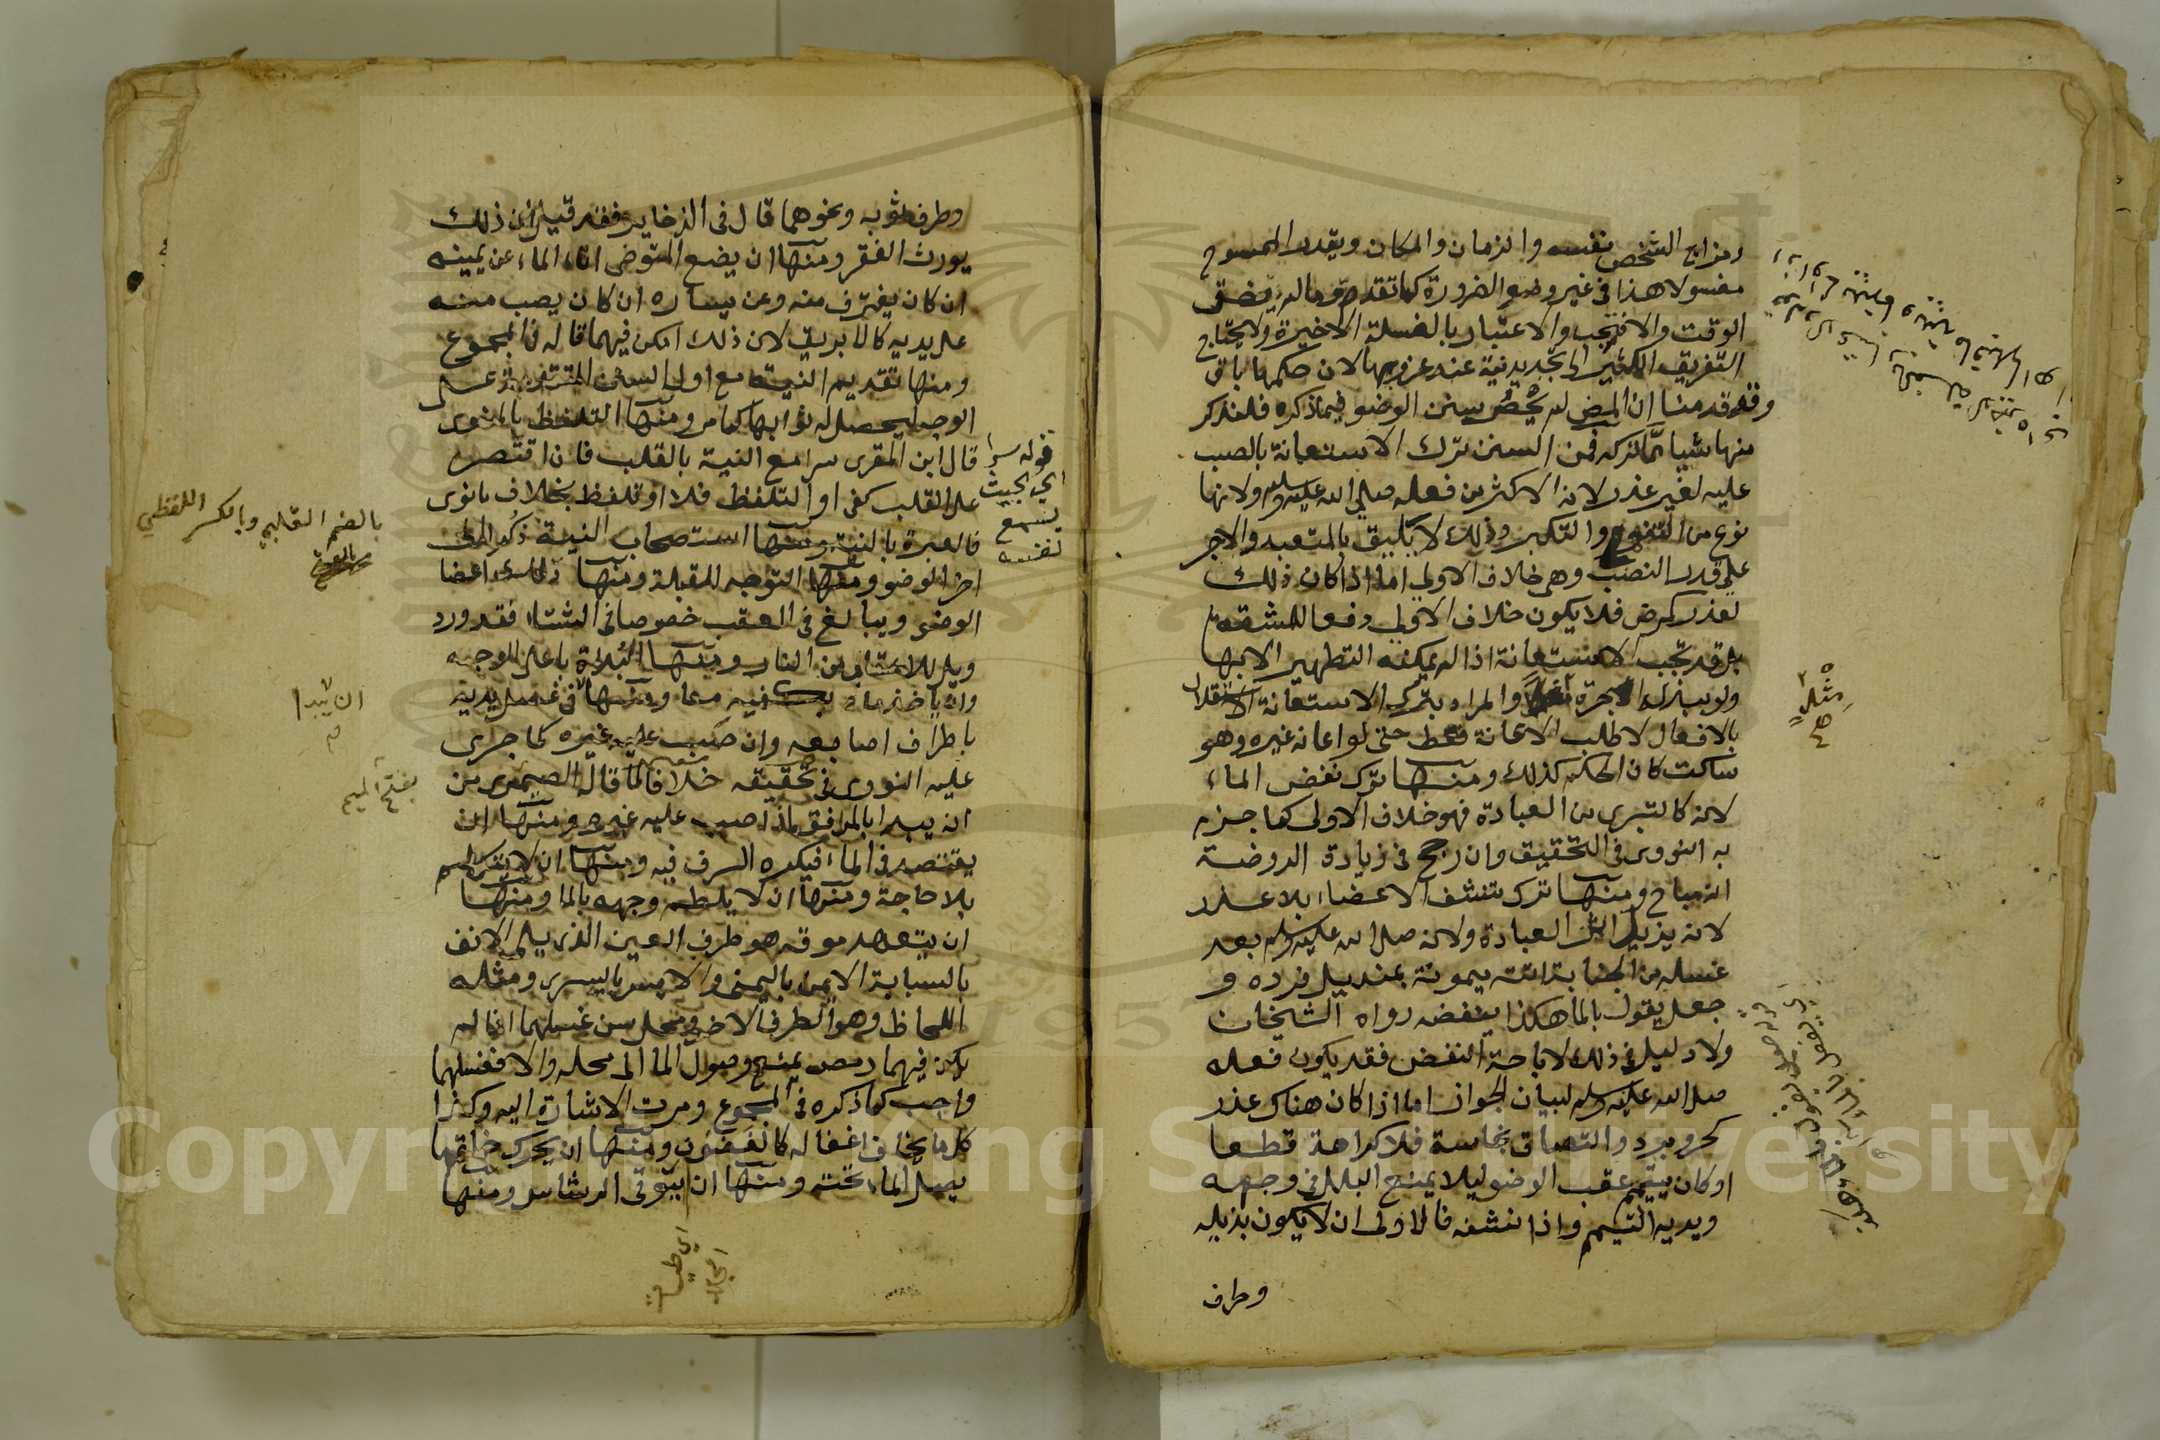 ومزاج الشخص نفسه والزمان والمكان ويقدر الممسوح
مغسولا هذا في غير وضو الضرورة كما تقدم وما لم يضق
الوقت والا فتجب والاعتبار بالغسلة الاخيرة ولا يحتاج
التفريق الكثير الى تجديد نية عند عزوبها لان حكمها باق
وقد قدمنا ان المص لم يحصر سنن الوضو فيما ذكره فلنذكر
منها شيا مما تركه فمن السنن ترك الاستعانة بالصب
عليه لغير عذر لانه الاكثر من فعله صلى الله عليه وسلم ولانها
نوع من التنعم والتكبر وذلك لا يليق بالمتعبد والاجر
على قدر النصب وهي خلاف الاولى اما اذا كان ذلك
لعذر كمرض فلا يكون خلاف الاولى دفعا للمشقة
بل قد تجب الاستعانة اذا لم يمكنه التطهير الا بها
ولو ببذل اجرة والمراد بترك الاستعانة الاستقلال
بالافعال لا طلب الاعانة فقط حتى لو اعانه غيره وهو
ساكت كان الحكم كذلك ومنها ترك نفض الماء
لانه كالتبري من العبادة فهو خلاف الاولى كما جزم
به النووي في التحقيق وان رجح في زيادة الروضة
انه مباح ومنها ترك تنشف الاعضاء بلا عذر
لانه يزيل اثر العبادة ولانه صلى الله عليه وسلم بعد
غسله من الجنابة اتته ميمونة بمنديل فرده و
جعل يقول بالماء هكذا ينفضه رواه الشيخان
ولا دليل في ذلك لاباحة النفض فقد يكون فعله
صلى الله عليه وسلم لبيان الجواز اما اذا كان هناك عذر
كحر وبرد والتصاق نجاسة فلا كراهة قطعا
او كان يتيمم عقب الوضو ليلا يمنع البلل في وجهه
ويديه التيمم واذا نشف فالاولى ان لا يكون بذيله
وطرف
مثل
وطرف ثوبه ونحوهما قال في الذخاير فقد قيل ان ذلك
يورث الفقر ومنها ان يضع المتوضي اناء الماء عن يمينه
ان كان يغترف منه وعن يساره ان كان يصب منه
على يديه كالابريق لان ذلك امكن فيهما قاله في المجموع
ومنها تقديم النية مع اول السنن المتقدمة على
الوجه ليحصل له ثوابها كما مر ومنها التلفظ بالمنوى
قال ابن المقري سرا مع النية بالقلب فان اقتصر
على القلب كفى او التلفظ فلا او تلفظ بخلاف ما نوى
فالعبرة بالنية ومنها استصحاب النية ذكرا الى
اخر الوضو ومنها التوجه للقبلة ومنها دلك اعضا
الوضو ويبالغ في العقب خصوصا في الشتاء فقد ورد
ويل للاعقاب من النار ومنها البداة باعلى الوجه
وان ياخذ ماءه بكفيه معا ومنها في غسل يديه
باطراف اصابعه وان صب عليه غيره كما جرى
عليه النووي في تحقيقه خلافا لما قاله الصيمري من
ان يبدا بالمرفق اذا صب عليه غيره ومنها ان
يقتصد في الماء فيكره السرف فيه ومنها ان لا يتكلم
بلا حاجة ومنها ان لا يلطم وجهه بالما ومنها
ان يتعهد موقه وهو طرف العين الذي يلي الانف
بالسبابة الايمن باليمنى والايسر باليسرى ومثله
اللحاظ وهو الطرف الاخر ومحل سن غسلهما اذا لم
يكن فيهما رمص يمنع وصول الما الى محله والا فغسلهما
واجب كما ذكره في المجموع ومرت الاشارة اليه وكذا
كل ما يخاف اغفاله كالغضون ومنها ان يحرك خاتمه
يصل الماء تحته ومنها ان يتوقى الرشاش ومنها
قوله سرا
اي بحيث
يسمع
نفسه
بالضم القلبي وبالكسر اللفظي
ان لا يبدا
بفتح الميم
Copyright © King Saud University
1957